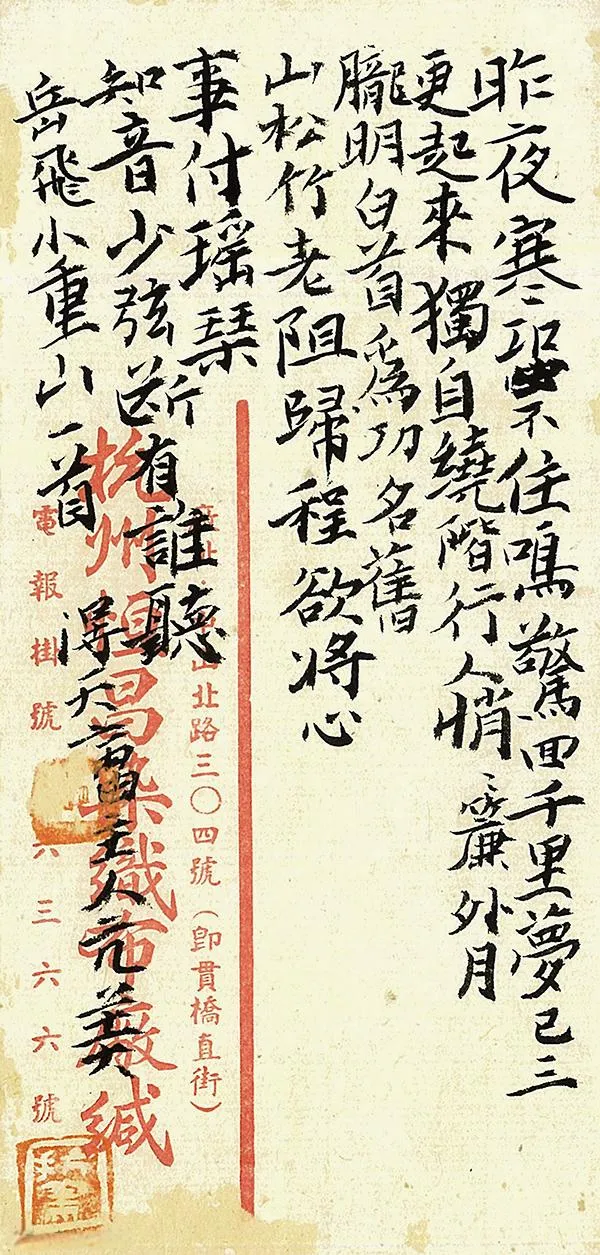 昨夜寒蛩不住鳴驚囬千里夢已三
更起來獨自繞階行人悄〻簾外月
朧明白首為功名舊
山松竹老阻歸程欲將心
事付瑤琴
知音少弦断有誰聽
岳飛小重山一首
主人
山北路三〇四號(即貫橋直街)
杭州 昌染織布廠緘
電報掛號 六三六六號